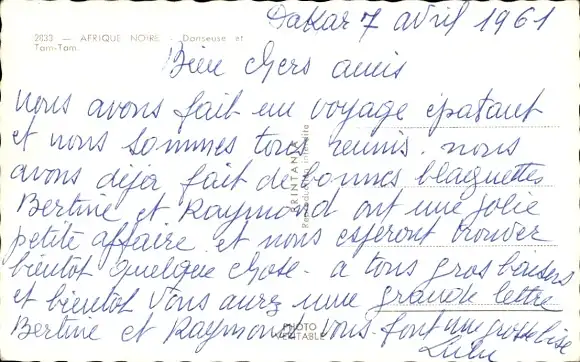 Dakar 7 avril 1961
2833 — AFRIQUE NOIRE - Danseuse et
Tam-Tam
Bien chers amis
nous avons fait un voyage épatant
et nous sommes tous reunis. nous
avons deja fait de bonnes blaguettes
Bertine et Raymond ont une jolie
petite affaire et nous esperont trouver
bientot quelque chose - a tous gros baisers
et bientot vous aurez une grande lettre
Bertine et Raymond vous font une grosse bise
Lulu
PRINTANIA
Reproduction interdite
PHOTO
VERITABLE